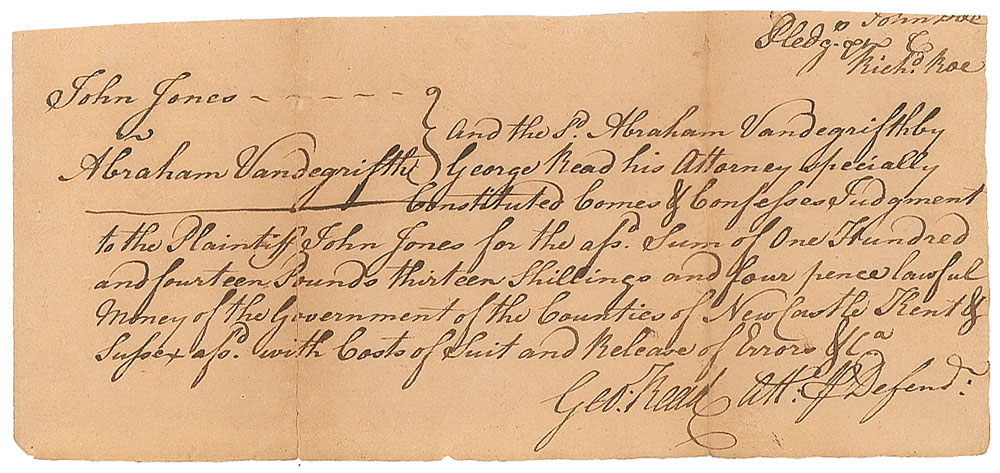 John Doe
Pledg.s &
Rich.d Roe
John Jones
v
Abraham Vandegrifth
And the s.d Abraham Vandegrifth by
George Read his Attorney specially
Constituted Comes & Confesses Judgment
to the Plaintiff John Jones for the afs.d Sum of One Hundred
and fourteen Pounds thirteen Shillings and four pence lawful
Money of the Government of the Counties of NewCastle Kent &
Sussex afs.d with Costs of Suit and Release of Errors & C.a
Geo: Read Att.o pr Defend.t